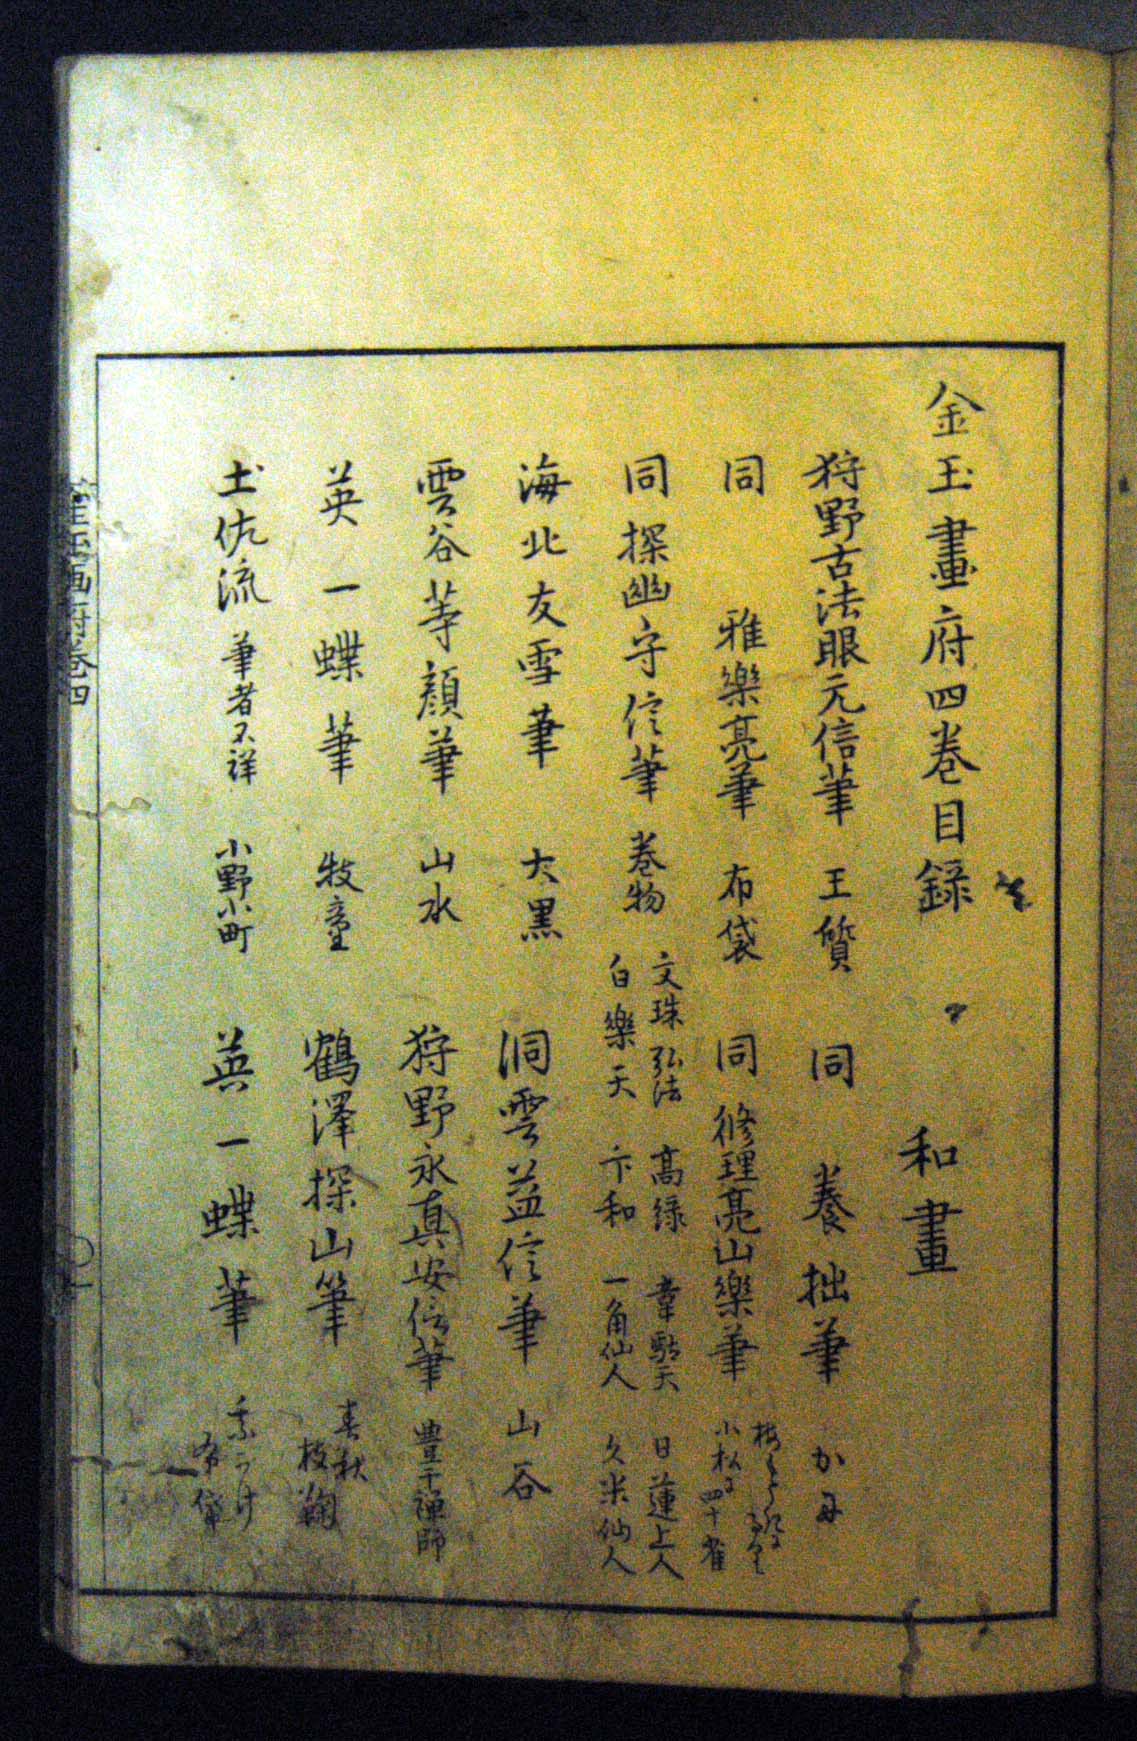 金玉畫府四巻目録　和畫
狩野古法眼元信筆　王質　同　養拙筆
同　雅樂亮筆　布袋　同　修理亮山樂筆　小松　四十雀
同探幽守信筆　巻物　文珠　弘法　高緑　韋駄天　日蓮上人
白樂天　卞和　一角仙人　久米仙人
海北友雪筆　大黒　洞雲益信筆　山谷
雲谷等顔筆　山水　狩野永真安信筆　豊干禅師
英一蝶筆　牧童　鶴澤探山筆　春秋
枝鞠
土佐流　筆者不詳　小野小町　英一蝶筆
布袋
金玉画府巻四